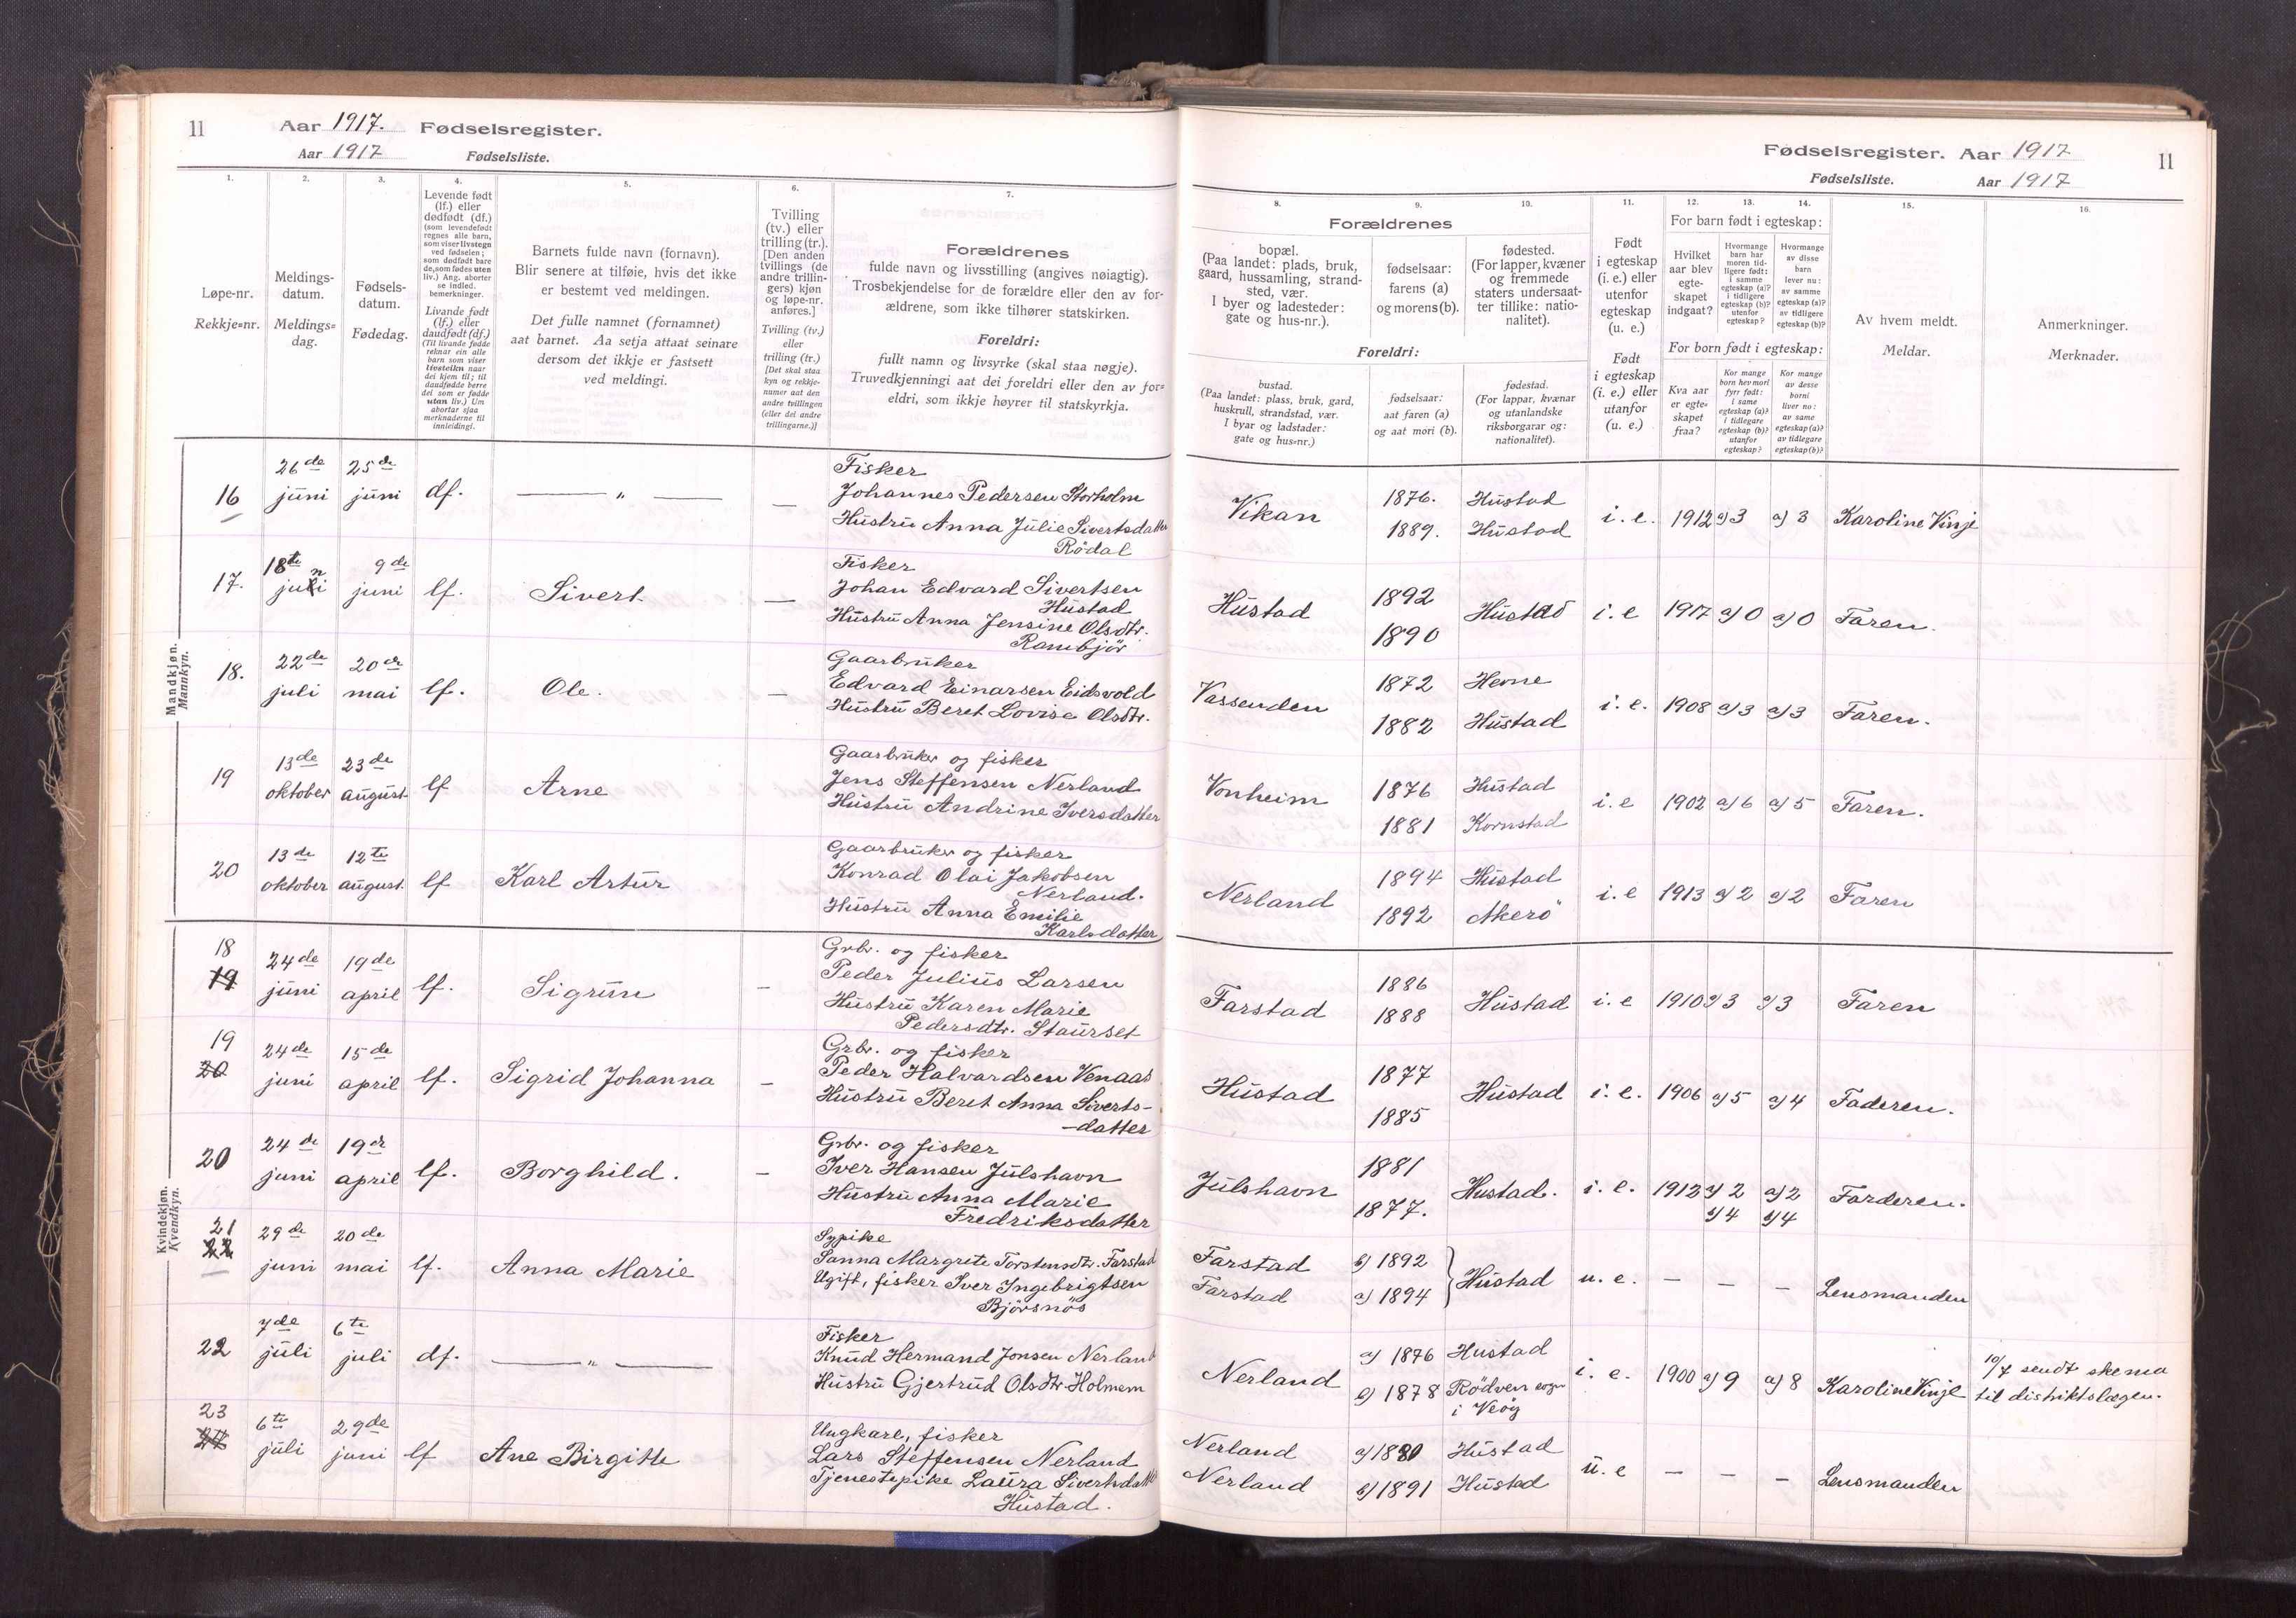 11
Aar 1917. Fødselsregister.
Aar 1917 Fødselsliste.
1.
Løpe-nr.
Rekkje=nr.
2.
Meldings-
datum.
Meldings=
dag.
3.
Fødsels-
datum.
Fødedag.
4.
Levende født
(lf.) eller
dødfødt (df.)
(som levendefødt
regnes alle barn,
som viser livstegn
ved fødselen;
som dødfødt bare
de, som fødes uten
liv.) Ang. aborter
se indled.
bemerkninger.
Livande født
(lf.) eller
daudfødt (df.)
(Til livande fødde
reknar ein alle
barn som viser
livsteikn naar
dei kjem til; til
daudfødde berre
dei som er fødde
utan liv.) Um
abortar sjaa
merknaderne til
innleidingi.
5.
Barnets fulde navn (fornavn).
Blir senere at tilføie, hvis det ikke
er bestemt ved meldingen.
Det fulle namnet (fornamnet)
aat barnet. Aa setja attaat seinare
dersom det ikkje er fastsett
ved meldingi.
6.
Tvilling
(tv.) eller
trilling (tr.).
[Den anden
tvillings (de
andre trillin-
gers) kjøn
og løpe-nr.
anføres.]
Tvilling (tv.)
eller
trilling (tr.)
[Det skal staa
kyn og rekkje-
numer aat den
andre tvillingen
(eller dei andre
trillingarne.)]
7.
Forældrenes
fulde navn og livsstilling (angives nøiagtig).
Trosbekjendelse for de forældre eller den av for-
ældrene, som ikke tilhører statskirken.
Foreldri:
fullt namn og livsyrke (skal staa nøgje).
Truvedkjenningi aat dei foreldri eller den av for=
eldri, som ikkje høyrer til statskyrkja.
Fødselsregister. Aar 1917
Fødselsliste. Aar 1917
11
8.
Forældrenes
bopæl.
(Paa landet: plads, bruk,
gaard, hussamling, strand-
sted, vær.
I byer og ladesteder:
gate og hus-nr.).
Foreldri:
bustad.
(Paa landet: plass, bruk, gard,
huskrull, strandstad, vær.
I byar og ladstader:
gate og hus=nr.)
9.
fødselsaar:
farens (a)
og morens (b).
fødselsaar:
aat faren (a)
og aat mori (b).
10.
fødested.
(For lapper, kvæner
og fremmede
staters undersaat-
ter tillike: natio-
nalitet).
fødestad.
(For lappar, kvænar
og utanlandske
riksborgarar og:
nationalitet).
11.
Født
i egteskap
(i. e.) eller
utenfor
egteskap
(u. e.)
Født
i egteskap
(i. e.) eller
utanfor
(u. e.)
12. 13. 14.
For barn født i egteskap:
Hvilket
aar blev
egte-
skapet
indgaat?
Hvormange
barn har
moren tid-
ligere født:
i samme
egteskap (a)?
i tidligere
egteskap (b)?
utenfor
egteskap?
Hvormange
av disse
barn
lever nu:
av samme
egteskap (a)?
av tidligere
egteskap (b)?
For born født i egteskap:
Kva aar
er egte=
skapet
fraa?
Kor mange
born hev mori
fyrr født:
i same
egteskap (a)?
i tidlegare
egteskap (b)?
utanfor
egteskap?
Kor mange
av desse
borni
liver no:
av same
egteskap (a)?
av tidlegare
egteskap (b)?
15.
Av hvem meldt.
Meldar.
16.
Anmerkninger.
Merknader.
Mandkjøn.
Mannkyn.
16 26de juni 25de juni df. — „ — —
Fisker
Johannes Pedersen Storholm
Hustru Anna Julie Sivertsdatter
Rødal
Vikan 1876. 1889. Hustad Hustad i. e. 1912 a) 3 a) 3 Karoline Vinje
17. 18te juni 9de juni lf. Sivert. —
Fisker
Johan Edvard Sivertsen
Hustad
Hustru Anna Jensine Olsdtr.
Rambjør
Hustad 1892 1890 Hustad i. e 1917 a) 0 a) 0 Faren.
18. 22de juli 20de mai lf. Ole. —
Gaarbruker
Edvard Einarsen Eidsvold
Hustru Beret Lovise Olsdtr.
Vassenden 1872 1882 Hevne Hustad i. e. 1908 a) 3 a) 3 Faren.
19 13de oktober 23de august lf Arne
Gaarbruker og fisker
Jens Steffensen Nerland
Hustru Andrine Iversdatter
Vonheim 1876 1881 Hustad Kornstad i. e 1902 a) 6 a) 5 Faren.
20 13de oktober 12te august. lf Karl Artur
Gaarbruker og fisker
Konrad Olai Jakobsen
Nerland.
Hustru Anna Emilie
Karlsdatter
Nerland 1894 1892 Hustad Akerö i. e 1913 a) 2 a) 2 Faren
Kvindekjøn.
Kvendkyn.
18
19 24de juni 19de april lf. Sigrun —
Grbr. og fisker
Peder Julius Larsen
Hustru Karen Marie
Pedersdtr. Staurset
Farstad 1886 1888 Hustad i. e 1910 a) 3 a) 3 Faren
19
20 24de juni 15de april lf. Sigrid Johanna —
Grbr. og fisker
Peder Halvardsen Venaas
Hustru Beret Anna Siverts-
-datter
Hustad 1877 1885 Hustad i. e. 1906 a) 5 a) 4 Faderen.
20 24de juni 19de april lf. Borghild. —
Grbr. og fisker
Iver Hansen Julshavn
Hustru Anna Marie
Fredriksdatter
Julshavn 1881 1877. Hustad. i. e. 1912 a) 2 b) 4 a) 2 b) 4 Farderen.
21
22 29de juni 20de mai lf. Anna Marie
Sypike
Sanna Margrete Torstensdtr. Farstad
Ugift, fisker Iver Ingebrigtsen
Bjørsnøs
Farstad Farstad b) 1892 a) 1894 } Hustad u. e. — — — Lensmanden
22 7de juli 6te juli df. — „ —
Fisker
Knud Hermand Jonsen Nerland
Hustru Gjertrud Olsdtr. Holmem
Nerland a) 1876 b) 1878 Hustad Rödven sogn i Veöy i. e. 1900 a) 9 a) 8 Karoline Vinje 10/7 sendt skema til distriktslægen.
23
24 6te juli 29de juni lf Ane Birgitte
Ungkarl, fisker
Lars Steffensen Nerland
Tjenestepike Laura Sivertsdatter
Hustad.
Nerland Nerland a) 1880 b) 1891 Hustad Hustad u. e — — — Lensmanden